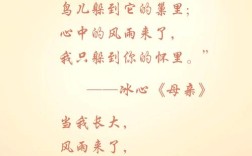 鸟儿躲到它的巢里；
心中的风雨来了，
我只躲到你的怀里。”
——冰心《母亲》
当我长大，
风雨来了，